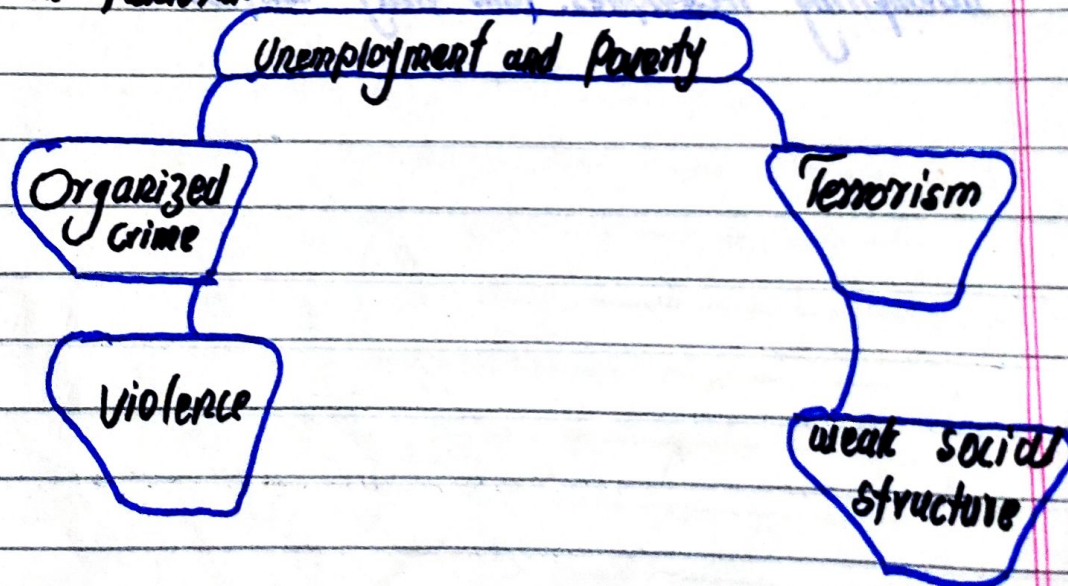 Unemployment and Poverty
Organized
crime
Terrorism
Violence
weak social
structure